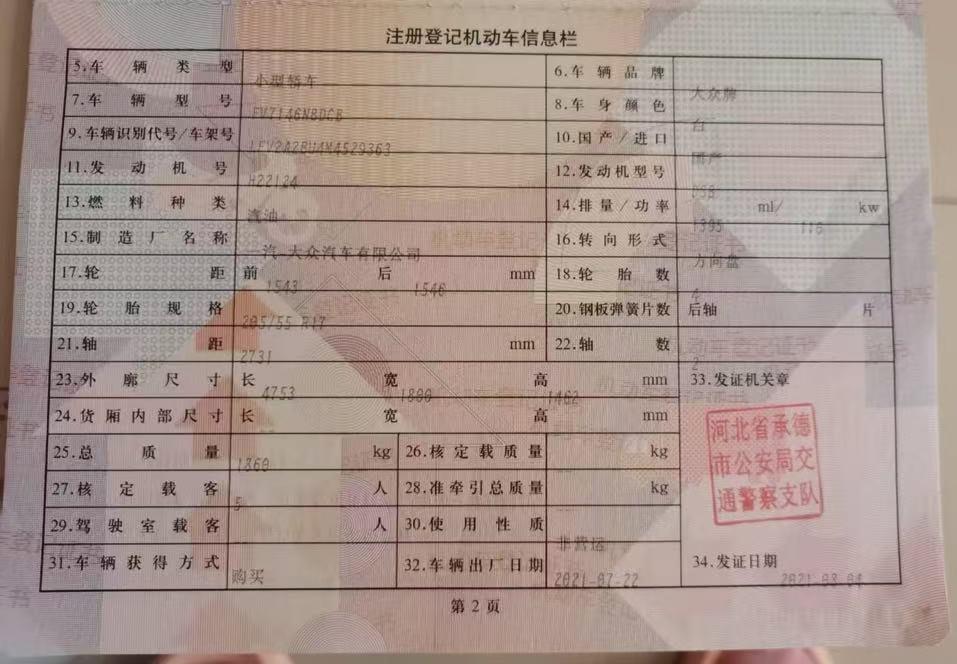 注册登记机动车信息栏
5.车辆类型 小型轿车 6.车辆品牌 大众牌
7.车辆型号 FV7146NBDCB 8.车身颜色 白
9.车辆识别代号/车架号 LFV2A2BU4M4529363 10.国产/进口 国产
11.发动机号 H22124 12.发动机型号
13.燃料种类 汽油 14.排量/功率 1395 ml/ 110 kw
15.制造厂名称 一汽-大众汽车有限公司 16.转向形式 方向盘
17.轮距 前 1543 后 1546 mm 18.轮胎数 4
19.轮胎规格 205/55 R17 20.钢板弹簧片数 后轴 片
21.轴距 2731 mm 22.轴数 2
23.外廓尺寸 长 4753 宽 1800 高 1462 mm 33.发证机关章
24.货厢内部尺寸 长 宽 高 mm
河北省承德
市公安局交
通警察支队
25.总质量 1860 kg 26.核定载质量 kg
27.核定载客 5 人 28.准牵引总质量 kg
29.驾驶室载客 人 30.使用性质 非营运
31.车辆获得方式 购买 32.车辆出厂日期 2021-07-22 34.发证日期 2021-08-04
第2页